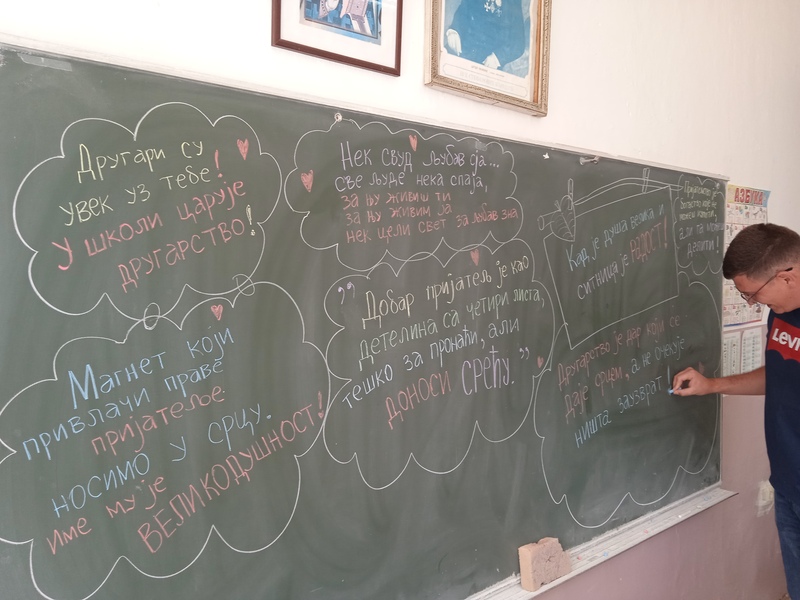 Другари су
увек уз тебе!
У школи царује
другарство!
Нек свуд љубав сја...
све људе нека спаја,
за њу живиш ти
за њу живим ја
нек цели свет за љубав зна
Кад је душа велика и
ситница је РАДОСТ!
Пријатељство је
богатство које не
можеш купити,
али га можеш
добити!
АЗБУКА
Магнет који
привлачи праве
пријатеље
носимо у срцу.
име му је
ВЕЛИКОДУШНОСТ!
„Добар пријатељ је као
детелина са четири листа,
тешко за пронаћи, али
доноси срећу.”
Другарство је дар који се
даје срцем, а не очекује
ништа заузврат!
Levi's